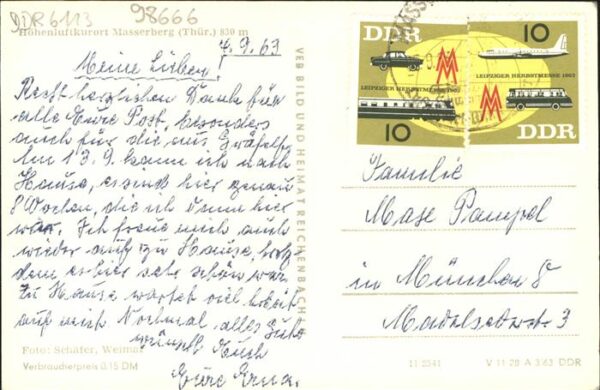 DDR 6113 98666
Höhenluftkurort Masserberg (Thür.) 830 m
7.9.63
Meine Lieben,
Recht herzlichen Dank für
alle Eure Post, besonders
auch für die aus Gräfelf.
Am 13.9. kann ich nach
Hause, es sind hier genau
8 Wochen, die ich dann hier
war. Ich freue mich auch
wieder auf zu Hause, trotz
dem es hier sehr schön war.
Zu Hause wartet viel Arbeit
auf mich. Nochmal alles Gute
wünscht Euch
Eure Erna.
Foto: Schäfer, Weimar
Verbraucherpreis 0,15 DM
VEB BILD UND HEIMAT REICHENBACH
DDR 10
LEIPZIGER HERBSTMESSE 1963 LEIPZIGER HERBSTMESSE 1963
10 DDR
Familie
Maxe Pampel
in München 8
3
11 2341 V 11 28 A 3/63 DDR